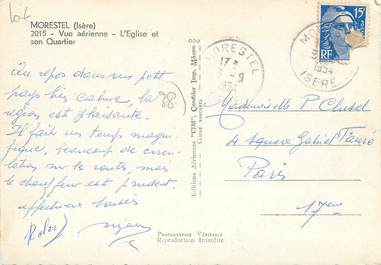 lot
MORESTEL (Isère)
2015 - Vue aérienne - L'Eglise et
son Quartier
Au repos dans un petit
pays très calme, la
région est plaisante.
Il fait un temps magni-
fique, beaucoup de circu-
lation sur les routes, mais
le chauffeur est prudent.
affectueux baisers
98
Editions Aériennes "CIM", Combier Imp. Mâcon
Photogravure Véritable
Reproduction Interdite
MORESTEL
17
1954
15F
RF
MORESTEL
1954
ISERE
Mademoiselle P. Clusel
4 Square Gabriel Fauré
Paris
17ème